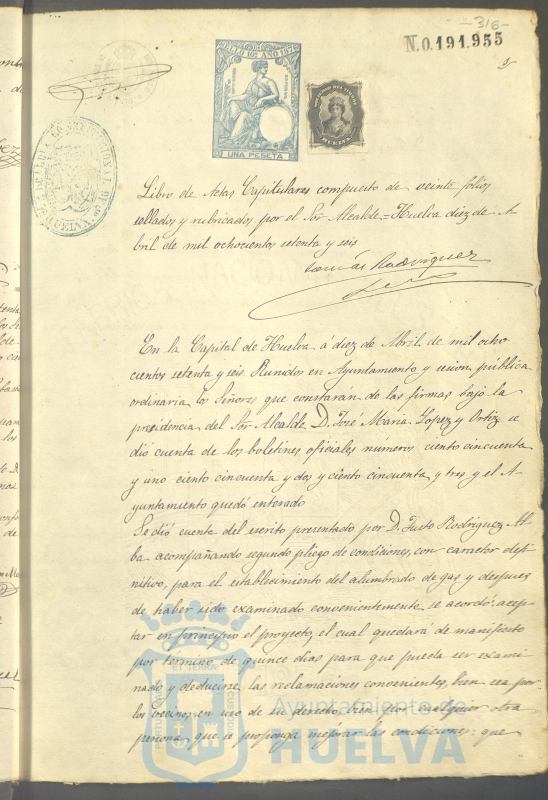 -316-
N.0.191.955
SELLO 10º AÑO 1876
UNA PESETA
Libro de Actas Capitulares compuesto de veinte folios
sellados y rubricados por el Sor Alcalde = Huelva diez de A-
bril de mil ochocientos setenta y seis
Tomás Rodríguez
En la Capital de Huelva á diez de Abril de mil ocho
cientos setenta y seis Reunidos en Ayuntamiento y sesion pública
ordinaria los Señores que constarán de las firmas bajo la
presidencia del Sor Alcalde D. José Maria Lopez y Ortiz se
dió cuenta de los boletines oficiales números ciento cincuenta
y uno ciento cincuenta y dos y ciento cincuenta y tres y el A-
yuntamiento quedó enterado
Se dió cuenta del escrito presentado por D. Justo Rodriguez Al-
ba acompañando segundo pliego de condiciones, con caracter defi-
nitivo, para el establecimiento del alumbrado de gas y despues
de haber sido examinado convenientemente se acordó: acep-
tar en principio el proyecto, el cual quedará de manifiesto
por termino de quince dias para que pueda ser exami-
nado y deducirse las reclamaciones convenientes, bien sea por
los vecinos en uso de su derecho, bien por cualquier otra
persona que se proponga mejorar las condiciones: que
Ayuntamiento de
HUELVA